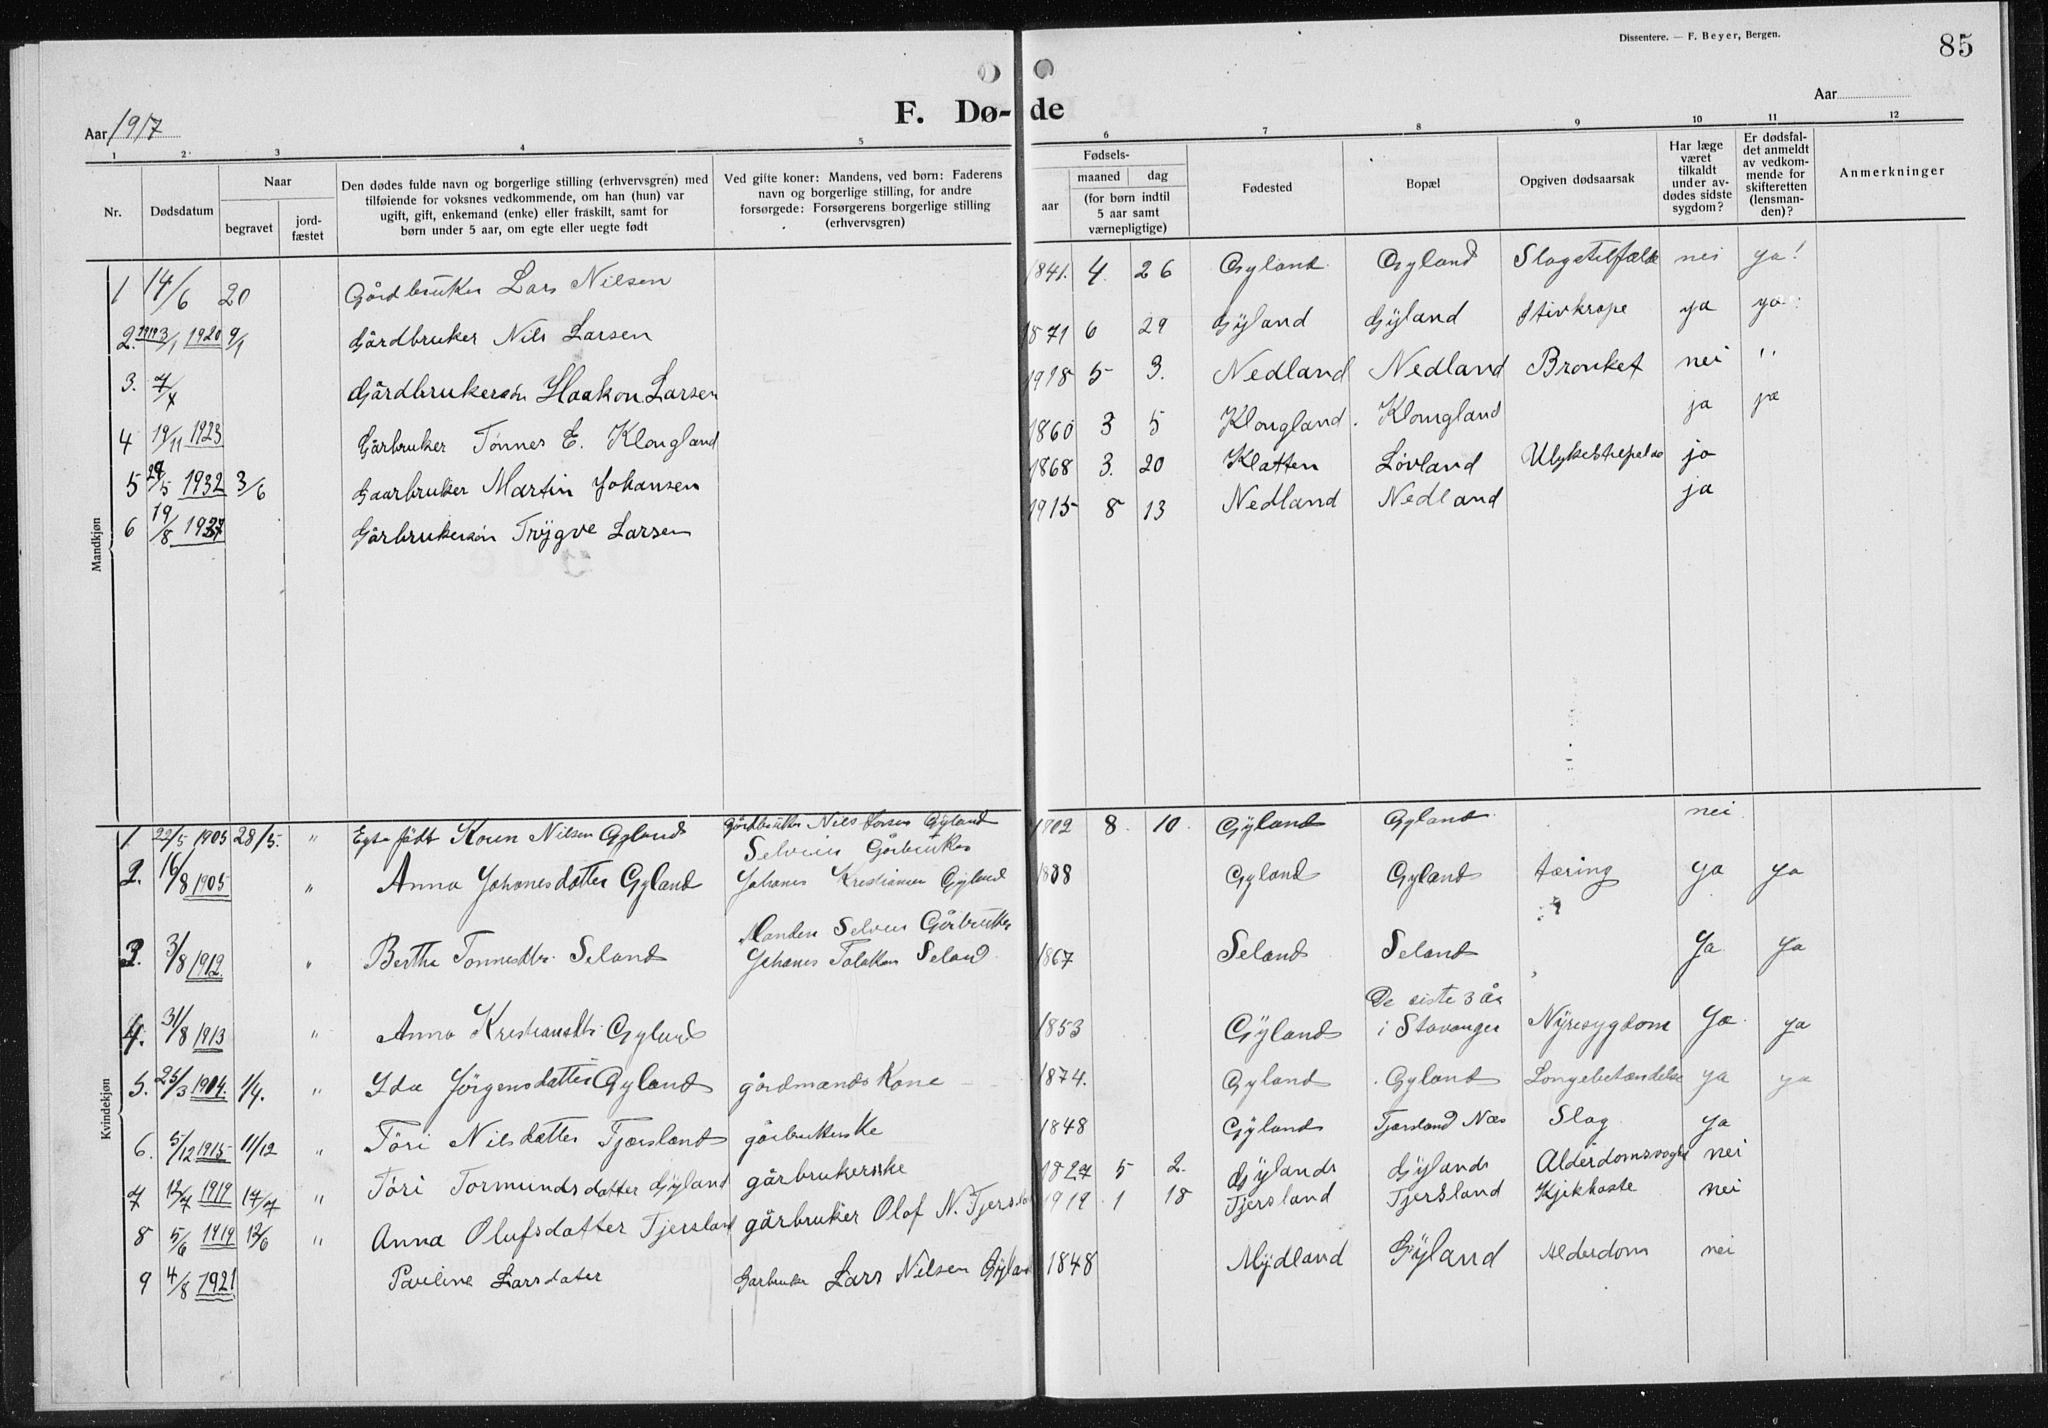 Dissentere. — F. Beyer, Bergen.
85
F. Dø- de
Aar 1917
Aar
1 2 3 4 5 6 7 8 9 10 11 12
Nr.
Dødsdatum
Naar
begravet
jord-
fæstet
Den dødes fulde navn og borgerlige stilling (erhvervsgren) med
tilføiende for voksnes vedkommende, om han (hun) var
ugift, gift, enkemand (enke) eller fraskilt, samt for
børn under 5 aar, om egte eller uegte født
Ved gifte koner: Mandens, ved børn: Faderens
navn og borgerlige stilling, for andre
forsørgede: Forsørgerens borgerlige stilling
(erhvervsgren)
Fødsels-
aar
maaned
dag
(for børn indtil
5 aar samt
værnepligtige)
Fødested
Bopæl
Opgiven dødsaarsak
Har læge
været
tilkaldt
under av-
dødes sidste
sygdom?
Er dødsfal-
det anmeldt
av vedkom-
mende for
skifteretten
(lensman-
den)?
Anmerkninger
Mandkjøn
1 14/6 20 Gårdbruker Lars Nilsen 1841. 4. 26 Gyland Gyland Slagstilfælde nei ya!
2. 3/1 1920 9/1 Gårdbruker Nils Larsen 1871 6 29 Gÿland Gÿland Stivkrope ya ya
3. 7/7 Gårdbrukersön Haakon Larsen 1918 5 3. Nedland Nedland Bronket nei "
4 19/11 1923 Gårbruker Tønnes E. Klongland 1860 3 5 Klongland. Klongland ja ja
5 29/5 1932 3/6 Gaarbruker Martin Johansen 1868 3. 20 Klatten Løvland jo
6 19/8 1927 Gårbrukersön Trÿgve Larsen 1915 8 13 Nedland Nedland ja
Kvindekjøn
1. 22/5 1905 28/5. " Egte født Nilsen Gyland Gårdbruker Nils Larsen Gyland 1902 8. 10. Gÿland Gyland nei
2. 16/8 1905 " Anna Johanesdatter Gyland Selveier Gårbruker
Johanes Kristiansen Gyland 1888 Gyland Gyland tæring ya ya
3. 3/8 1912 " Bertha Tønnesdtr. Seland Manden Selveier Gårbruker
Johanes Seland 1867 Seland Seland Ya Ya
4. 31/8 1913 " Anna Kristiansdtr Gyland 1853 Gÿland De siste 3 år
i Stavanger Nyresygdom Ya ya
5. 25/3 1904. 1/4. " Ida Jörgensdatter Gyland gårdmands Kone 1874. Gyland Gyland Longebetændelse ya ya
6. 5/12 1915 11/12 " Töri Nilsdatter Tjersland gårbrukerske 1848 Gyland Tjersland Næs Slag ya
7 12/7 1919 17/7 " Töri Tormundsdatter Gÿland gårbrukerske 1827 5 2. Gÿland Gÿland nei
8 5/6 1919 12/6 " Anna Olufsdatter Tjersland gårbruker Olaf N. Tjersland 1919 1 18 Tjersland Tjersland Kjikhoste nei
9 4/8 1921 Paveline Larsdater Garbruker Lars Nilsen Gÿland 1848 Mÿdland Gÿland Alderdom nei